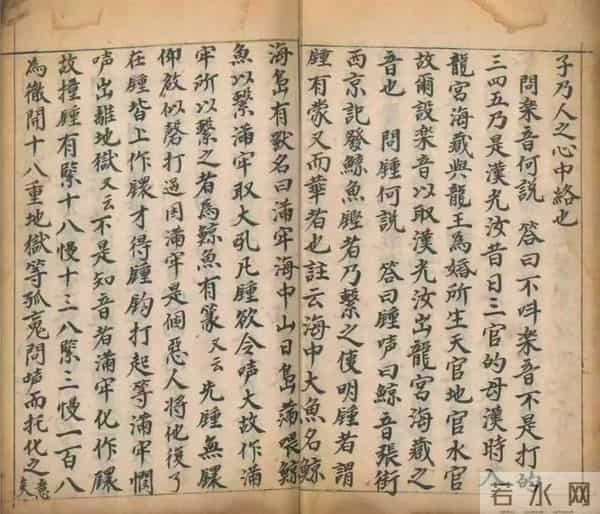 子乃人之心中絡也
問樂音何説 答曰不呌樂音不是打的
三四五乃是漢光汝昔日三官的母漢時入
龍宮海藏與龍王為婚所生天官地官水官
故爾設樂音以取漢光汝出龍宮海藏之
音也 問鍾何説 答曰鍾声曰鯨音張衡
西京記發鯨魚鏗者乃擊之使明鍾者謂
鍾有蒙又而華者也註云海中大魚名鯨
海島有獸名曰滿牢海中山曰島蒲 鯨
魚以繫滿牢取大吼凡鍾欲令声大故作滿
牢所以繫之者為鯨魚有篆又云先鍾無鐶
仰放似磬打 因滿牢是個惡人將他後了
在鍾皆上作鐶才得鍾鈎打起等滿牢憫
声出離地獄又云不是知音者滿牢化作鐶
故撞鍾有緊十八慢十三八緊三慢一百八
為徹開十八重地獄等孤䰟問声而托化之意矣
若水网